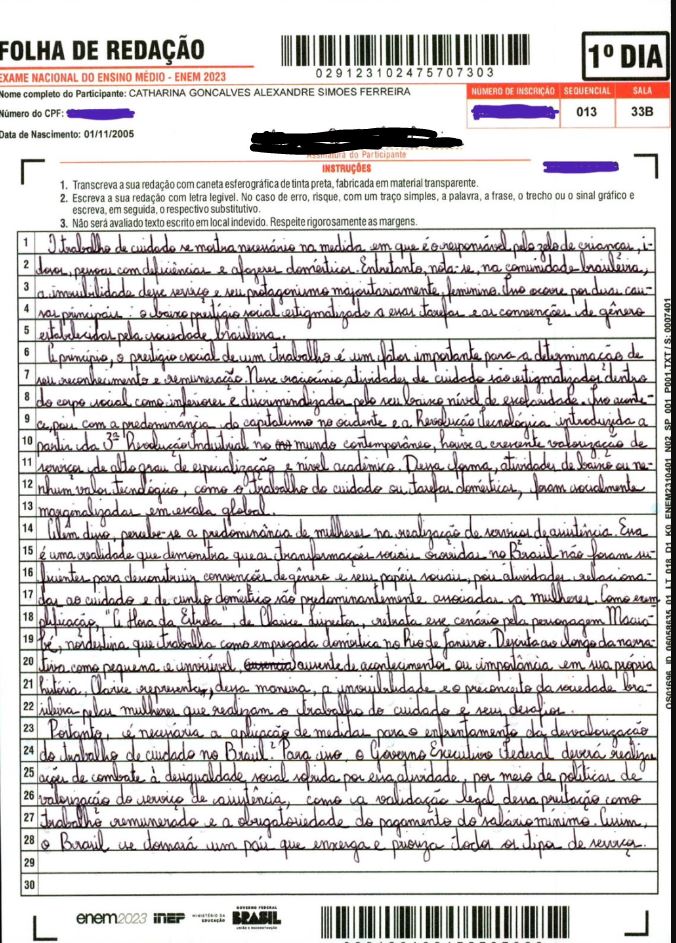 FOLHA DE REDAÇÃO
EXAME NACIONAL DO ENSINO MÉDIO - ENEM 2023
029123102475707303
1º DIA
Nome completo do Participante: CATHARINA GONCALVES ALEXANDRE SIMOES FERREIRA
Número do CPF:
Data de Nascimento: 01/11/2005
NÚMERO DE INSCRIÇÃO SEQUENCIAL SALA
013 33B
Assinatura do Participante
INSTRUÇÕES
1. Transcreva a sua redação com caneta esferográfica de tinta preta, fabricada em material transparente.
2. Escreva a sua redação com letra legível. No caso de erro, risque, com um traço simples, a palavra, a frase, o trecho ou o sinal gráfico e
escreva, em seguida, o respectivo substitutivo.
3. Não será avaliado texto escrito em local indevido. Respeite rigorosamente as margens.
1 O trabalho de cuidado se mostra necessário na medida em que é o responsável pelo zelo de crianças, i-
2 dosos, pessoas com deficiências e afazeres domésticos. Entretanto, nota-se, na comunidade brasileira,
3 a invisibilidade desse serviço e seu protagonismo majoritariamente feminino. Isso ocorre por duas cau-
4 sas principais: o baixo prestígio social estigmatizado a essas tarefas e as convenções de gênero
5 estabelecidas pela sociedade brasileira.
6 A princípio, o prestígio social de um trabalho é um fator importante para a determinação de
7 seu reconhecimento e remuneração. Nesse raciocínio, atividades de cuidado são estigmatizadas dentro
8 do corpo social como inferiores e discriminalizadas pelo seu baixo nível de escolaridade. Isso aconte-
9 ce, pois com a predominância do capitalismo no ocidente e a Revolução Tecnológica introduzida a
10 partir da 3ª Revolução Industrial no mundo contemporâneo, houve a crescente valorização de
11 serviços de alto grau de especialização e nível acadêmico. Dessa forma, atividades de baixo ou ne-
12 nhum valor tecnológico, como o trabalho do cuidado ou tarefas domésticas, foram socialmente
13 marginalizadas em escala global.
14 Além disso, percebe-se a predominância de mulheres na realização de serviços de assistência. Essa
15 é uma realidade que demonstra que as transformações sociais ocorridas no Brasil não foram su-
16 ficientes para desconstruir convenções de gênero e seus papéis sociais, pois atividades relaciona-
17 das ao cuidado e de cunho doméstico são predominantemente associadas a mulheres. Como exem-
18 plificação, "A Hora da Estrela", de Clarice Lispector, retrata esse cenário pela personagem Macia-
19 béa, nordestina que trabalha como empregada doméstica no Rio de Janeiro. Descrita ao longo da narra-
20 tiva como pequena e invisível, ausente de acontecimentos ou importância em sua própria
21 história, Clarice representa, dessa maneira, a invisibilidade e o preconceito da sociedade bra-
22 sileira pelas mulheres que realizam o trabalho do cuidado e seus desafios.
23 Portanto, é necessária a aplicação de medidas para o enfrentamento da desvalorização
24 do trabalho de cuidado no Brasil. Para isso, o Governo Executivo Federal deverá realizar
25 ações de combate à desigualdade social sofrida por essa atividade, por meio de políticas de
26 valorização do serviço de assistência, como a validação legal dessa prestação como
27 trabalho remunerado e a obrigatoriedade do pagamento do salário mínimo. Assim,
28 o Brasil se tornará um país que enxerga e prioriza todos os tipos de serviço.
29
30
enem2023 INEP MINISTÉRIO DA EDUCAÇÃO GOVERNO FEDERAL BRASIL UNIÃO E RECONSTRUÇÃO